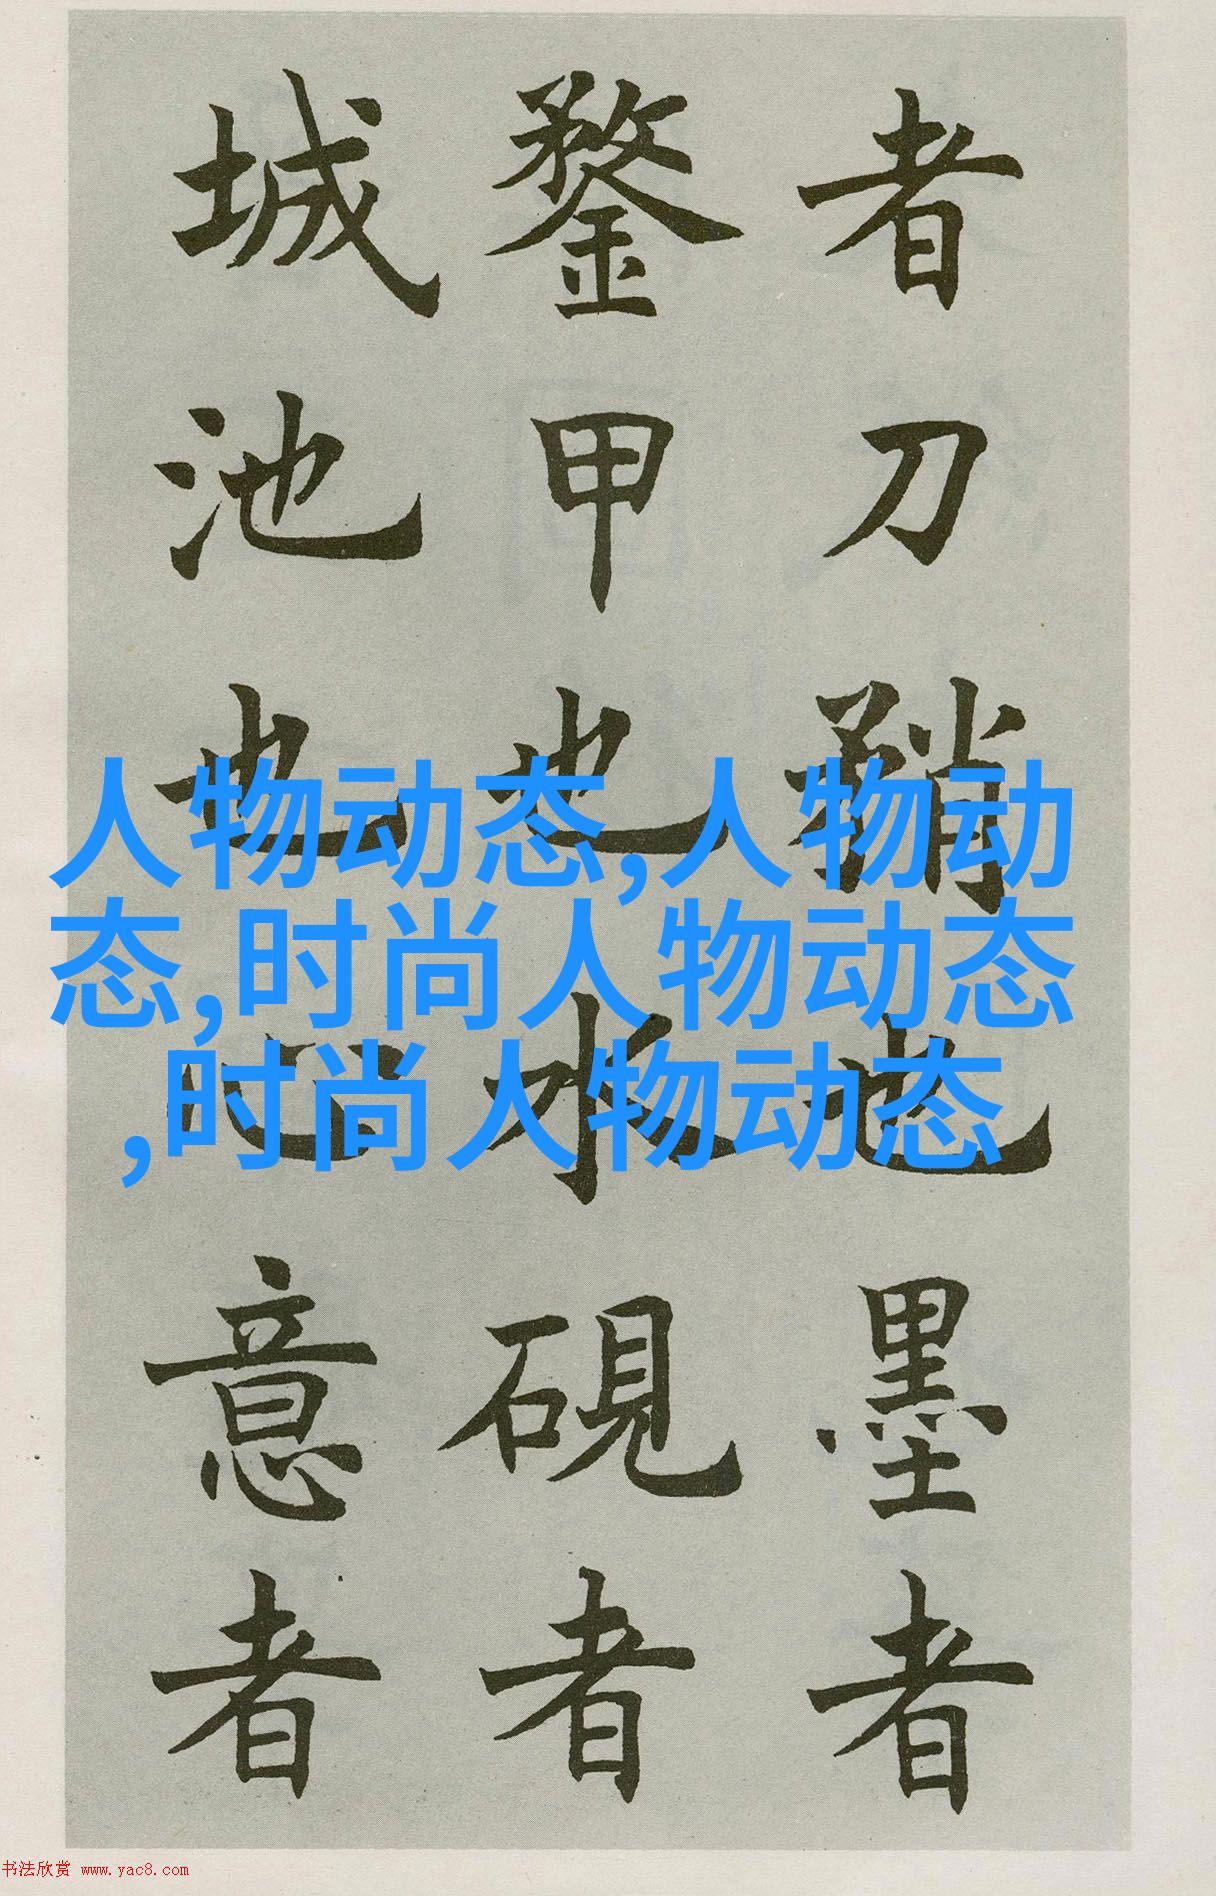 者刀矟也墨者
鍪甲也水硯者
城池也心意者
人物动态,人物动
态,时尚人物动态
,时尚人物动态
书法欣赏 www.yac8.com